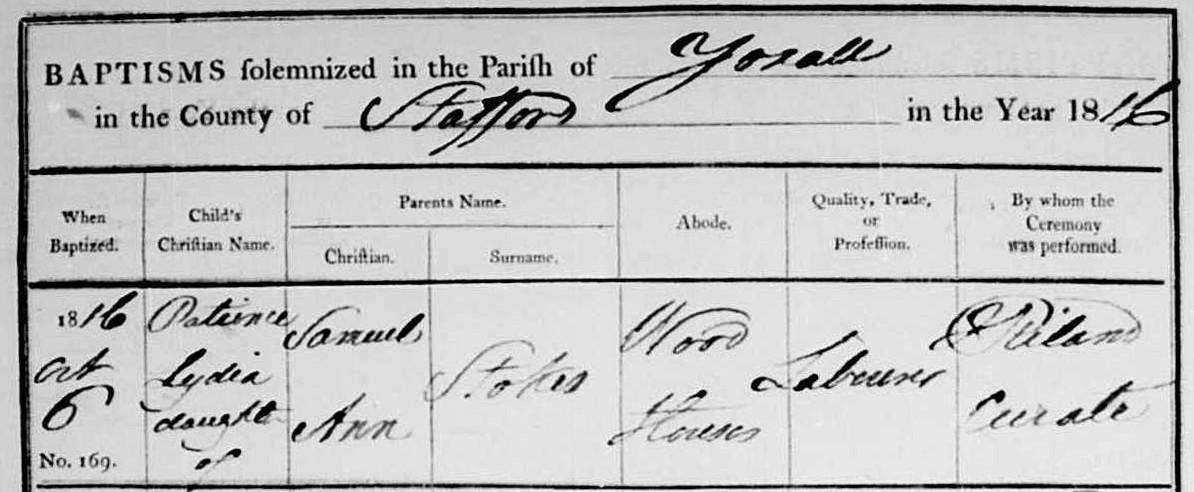 BAPTISMS solemnized in the Parish of Yoxall
in the County of Stafford in the Year 1816
When Baptized.
Child's Christian Name.
Parents Name.
Christian.
Surname.
Abode.
Quality, Trade, or Profession.
By whom the Ceremony was performed.
1816
Oct
6
No. 169.
Patience
Lydia
daughter
of
Samuel
Ann
Stokes
Wood
Houses
Labourer
Riland
Curate